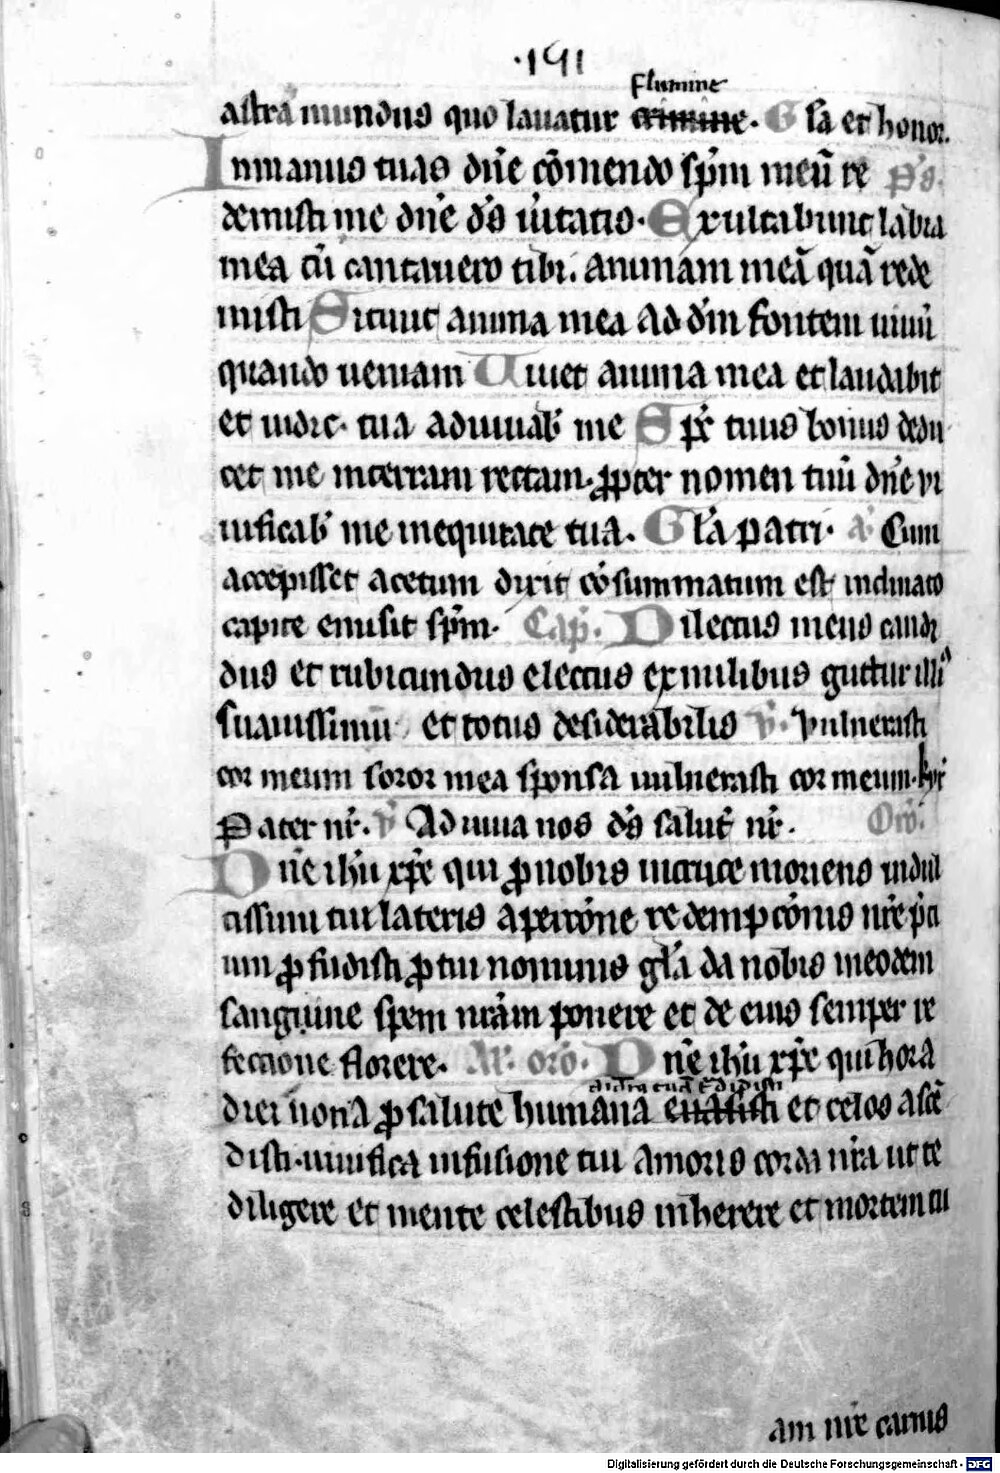 ·191·
flumine
astra mundus quo lauatur crimine. G la et honor.
In manus tuas dn̄e cōmendo sp̄m meū re p̄s.
demisti me dn̄e ds̄ ūitatis. Exultabunt labia
mea cū cantauero tibi. animam meā quā rede
misti Sitiuit anima mea ad dm̄ fontem uiuū
quando ueniam Uiuet anima mea et laudabit
et iudic. tua adiuuab̄ me Sp̄c tuus bonus dedu
cet me in terram rectam. ꝓpter nomen tuū dn̄e vi
uificab̄ me in equitate tua. Gl̄a patri. a. Cum
accepisset acetum dixit cōsummatum est inclinato
capite emisit sp̄m. Cap̄. Dilectus meus candi
dus et rubicundus electus ex milibus guttur illiꝰ
suauissimū et totus desiderabilis v̄. vulnerasti
cor meum soror mea sponsa uulnerasti cor meum. kyr̄
Pater nr̄. v̄ Adiuua nos ds̄ salut̄ nr̄. Orō.
Dn̄e ihū xp̄e qui ꝓ nobis in cruce moriens in dul
cissimi tui lateris apercōne redempcōnis nr̄e p̄ci
um ꝓfudisti ꝓ tui nominis gl̄a da nobis in eodem
sanguine spem nr̄am ponere et de eius semper re
fectione florere. Al̄. orō. Dn̄e ihū xp̄e qui hora
diei nona ꝓ salute humana et celos ascē
disti. uiuifica infusione tui amoris corda nr̄a ut te
diligere et mente celestibus inherere et mortem tu
am nr̄e carnis
Digitalisierung gefördert durch die Deutsche Forschungsgemeinschaft - DFG